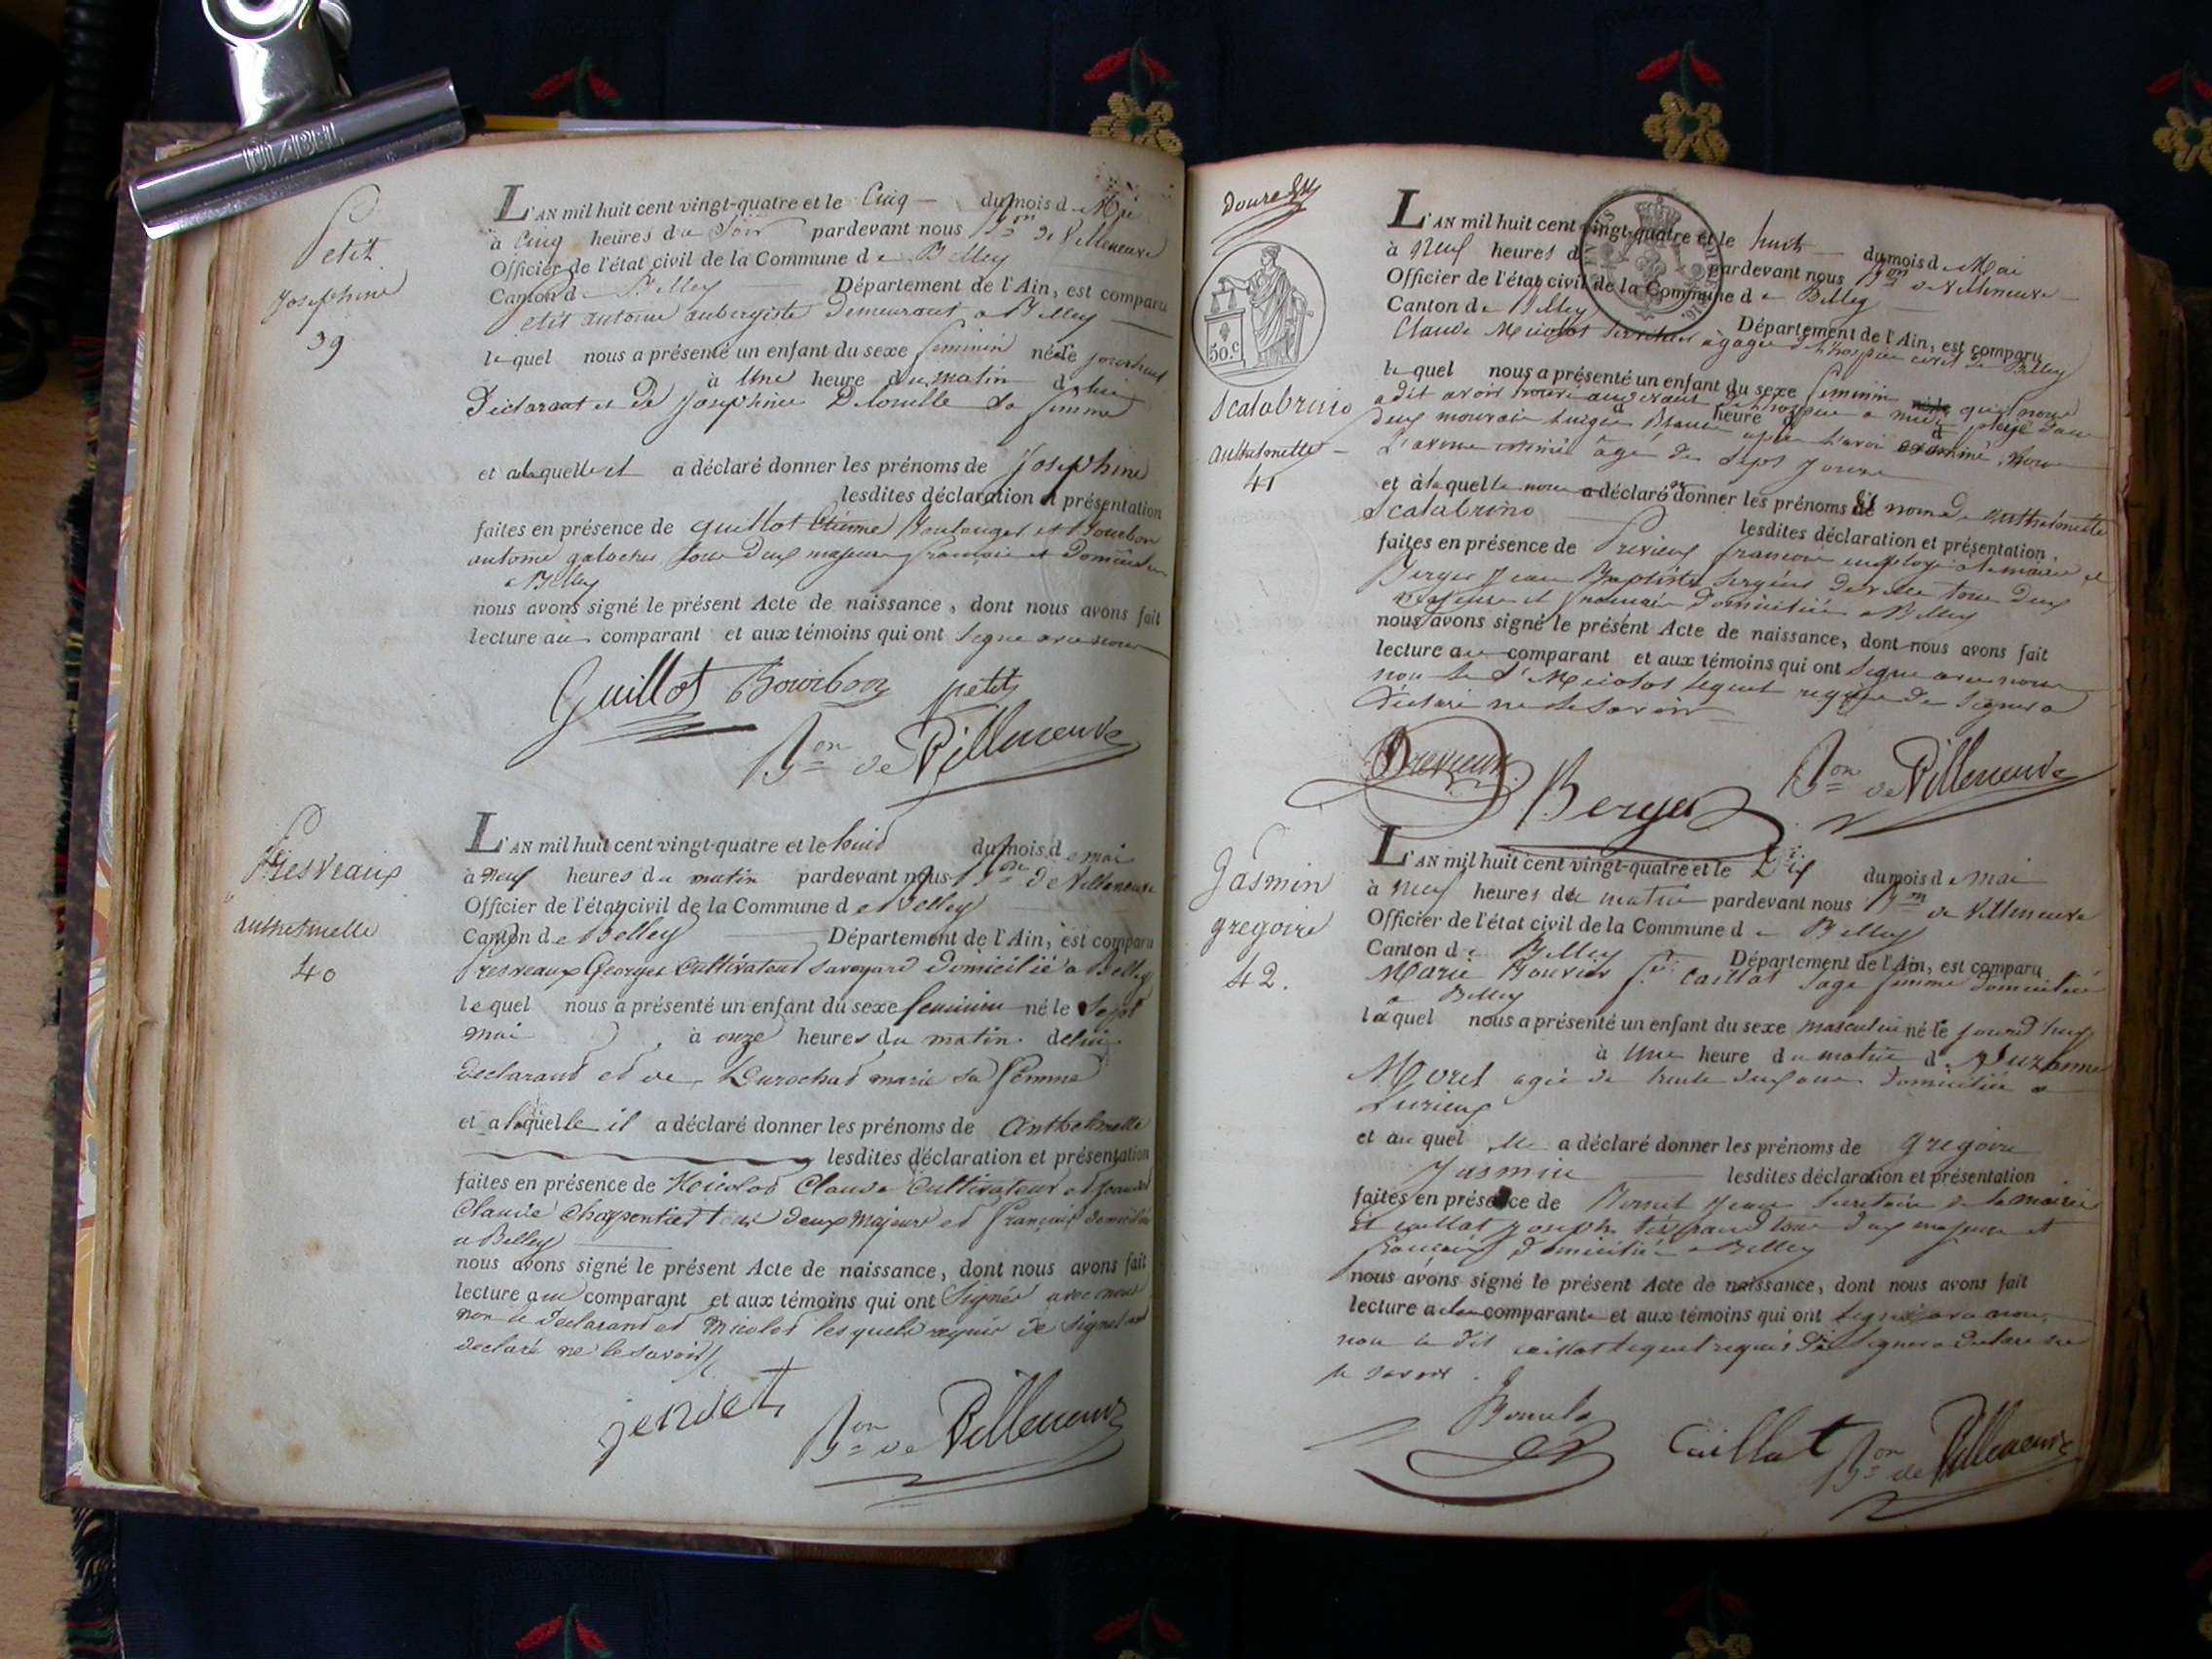 Petit
Josephine
39
L'AN mil huit cent vingt-quatre et le Cinq du mois de Mai
à Cinq heures du Soir pardevant nous Bon de Villeneuve
Officier de l'état civil de la Commune de Belley
Canton de Belley Département de l'Ain, est comparu
Petit antoine aubergiste Demeurant a Belley
lequel nous a présenté un enfant du sexe feminin né le jourdhui
à Une heure du matin de lui
Déclarant et de Josephine sa femme
et a laquelle il a déclaré donner les prénoms de Josephine
lesdites déclaration et présentation
faites en présence de Guillot Etienne Boulanger et Bourbon
antoine galocher tous deux majeurs français et Domiciliés
a Belley
nous avons signé le présent Acte de naissance, dont nous avons fait
lecture au comparant et aux témoins qui ont signé avec nous
Guillot Bourbon petit
Bon de Villeneuve
Fresveaux
anthelmelle
40
L'AN mil huit cent vingt-quatre et le huit du mois de mai
à neuf heures du matin pardevant nous Bon de Villeneuve
Officier de l'état civil de la Commune de Belley
Canton de Belley Département de l'Ain, est comparu
Fresveaux Georges Cultivateur savoyard domicilié a Belley
lequel nous a présenté un enfant du sexe feminin né le Sept
mai à onze heures du matin de lui
declarant et de Durochat marie sa femme
et a laquelle il a déclaré donner les prénoms de Anthelmelle
lesdites déclaration et présentation
faites en présence de Nicolod Claude Cultivateur et
Claude Charpentier tous deux majeurs et français domiciliés
a Belley
nous avons signé le présent Acte de naissance, dont nous avons fait
lecture au comparant et aux témoins qui ont Signés avec nous
non le declarant et Micolod lesquels requis de signer ont
declaré ne le savoir
jendet
Bon de Villeneuve
50.c
Scalabrino
anthelmelle
41
L'AN mil huit cent vingt-quatre et le huit du mois de Mai
à Neuf heures d pardevant nous Bon de Villeneuve
Officier de l'état civil de la Commune de Belley
Canton de Belley Département de l'Ain, est comparu
Claude Micolod a gages de l'hospice civil de Belley
lequel nous a présenté un enfant du sexe feminin qu'il nous
a dit avoir trouvé au devant de l'hospice a plié dans
deux mauvais langes après l'avoir examiné, nous
l'avons estimé âgé de Sept jours
et à laquelle nous avons déclaré donner les prénoms et nom de anthelmelle
Scalabrino lesdites déclaration et présentation
faites en présence de Previeux françois employé a la mairie et
Berger Jean Baptiste Sergent de ville tous deux
majeurs et français domiciliés a Belley
nous avons signé le présent Acte de naissance, dont nous avons fait
lecture au comparant et aux témoins qui ont signé avec nous
non le Sr Micolod lequel requis de signer a
Déclaré ne le savoir
Previeux
Berger
Bon de Villeneuve
Jasmin
gregoire
42.
L'AN mil huit cent vingt-quatre et le Dix du mois de mai
à neuf heures du matin pardevant nous Bon de Villeneuve
Officier de l'état civil de la Commune de Belley
Canton de Belley Département de l'Ain, est comparu
Marie Bouvier fe Caillat Sage femme domiciliée
a Belley
laquel nous a présenté un enfant du sexe masculin né le jourd'huy
à Une heure du matin de Suzanne
Morel agée de trente deux ans domiciliée a
et au quel elle a déclaré donner les prénoms de Gregoire
Jasmin lesdites déclaration et présentation
faites en présence de Jean Secretaire de la mairie
et Caillat Joseph tisserand tous deux majeurs et
français domiciliés a Belley
nous avons signé le présent Acte de naissance, dont nous avons fait
lecture a la comparante et aux témoins qui ont signé avec nous,
non le dit Caillat lequel requis de signer a Declaré ne
le savoir.
Caillat
Bon de Villeneuve